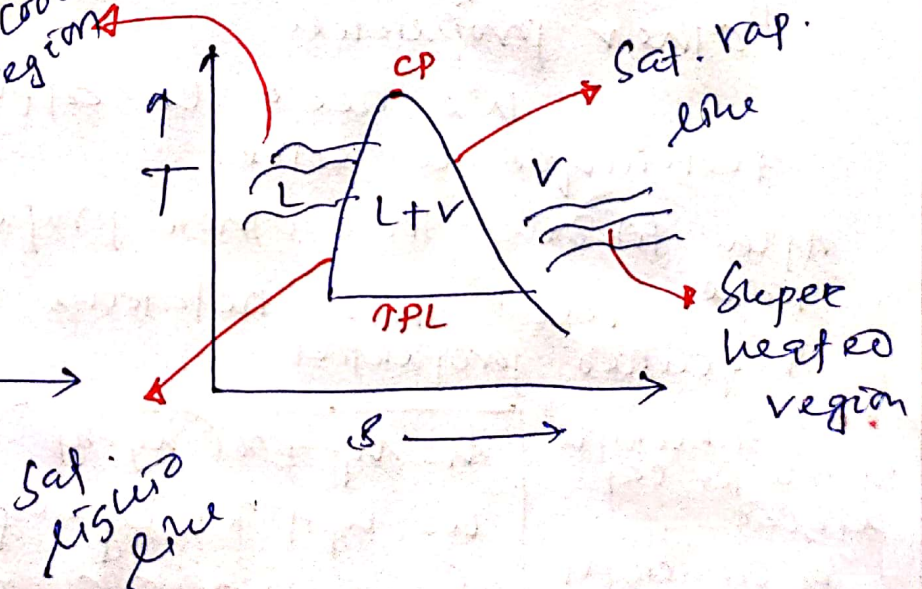 egion
CP
Sat. vap.
line
T
L
L+V
V
TPL
Super
heated
region
S
Sat.
liquid
line